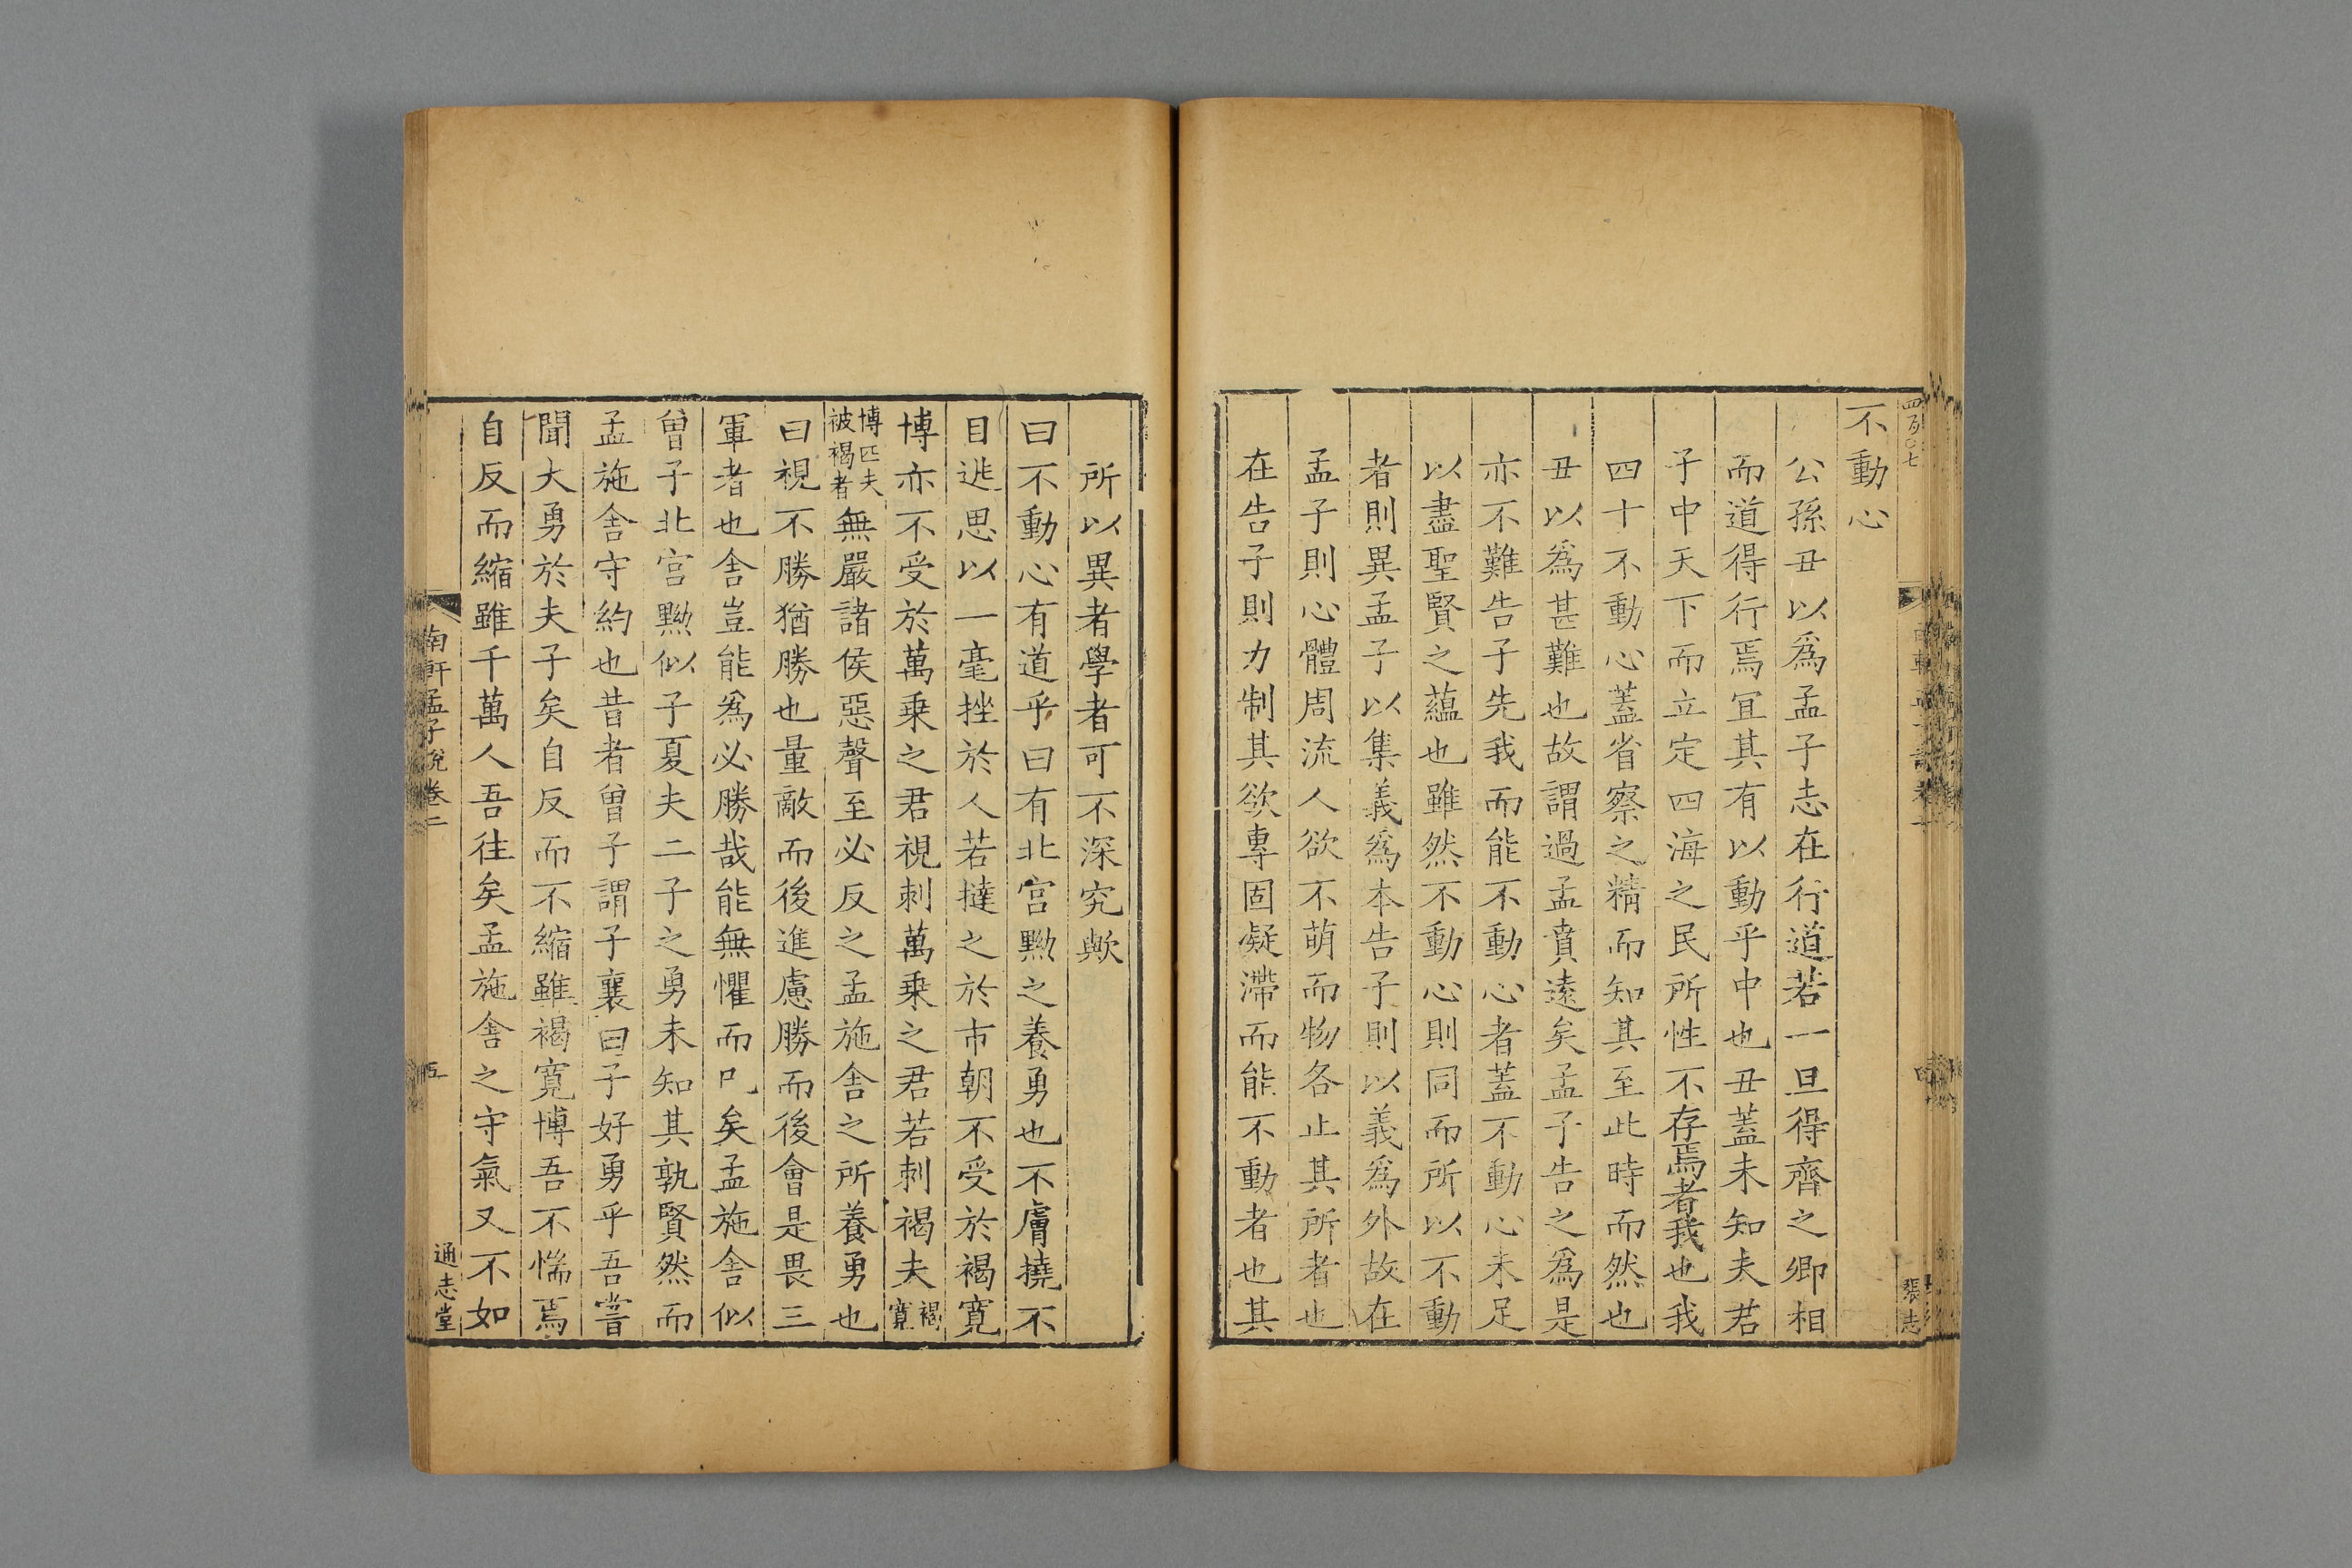 四百〇七
不動心
公孫丑以爲孟子志在行道若一旦得齊之卿相
而道得行焉冝其有以動乎中也丑蓋未知夫君
子中天下而立定四海之民所性不存焉者我也我
四十不動心蓋省察之精而知其至此時而然也
丑以爲甚難也故謂過孟賁遠矣孟子告之爲是
亦不難告子先我而能不動心者蓋不動心未足
以盡聖賢之蘊也雖然不動心則同而所以不動
者則異孟子以集義爲本告子則以義爲外故在
孟子則心體周流人欲不萌而物各止其所者也
在告子則力制其欲專固凝滯而能不動者也其
張志
所以異者學者可不深究歟
曰不動心有道乎曰有北宫黝之養勇也不膚撓不
目逃思以一毫挫於人若撻之於市朝不受於褐寛
博亦不受於萬乗之君視刺萬乗之君若刺褐夫褐寛
博匹夫被褐者無嚴諸侯惡聲至必反之孟施舍之所養勇也
曰視不勝猶勝也量敵而後進慮勝而後會是畏三
軍者也舍豈能爲必勝哉能無懼而已矣孟施舍似
曽子北宫黝似子夏夫二子之勇未知其孰賢然而
孟施舍守約也昔者曽子謂子襄曰子好勇乎吾嘗
聞大勇於夫子矣自反而不縮雖褐寛博吾不惴焉
自反而縮雖千萬人吾往矣孟施舍之守氣又不如
南軒孟子說卷二
五
通志堂